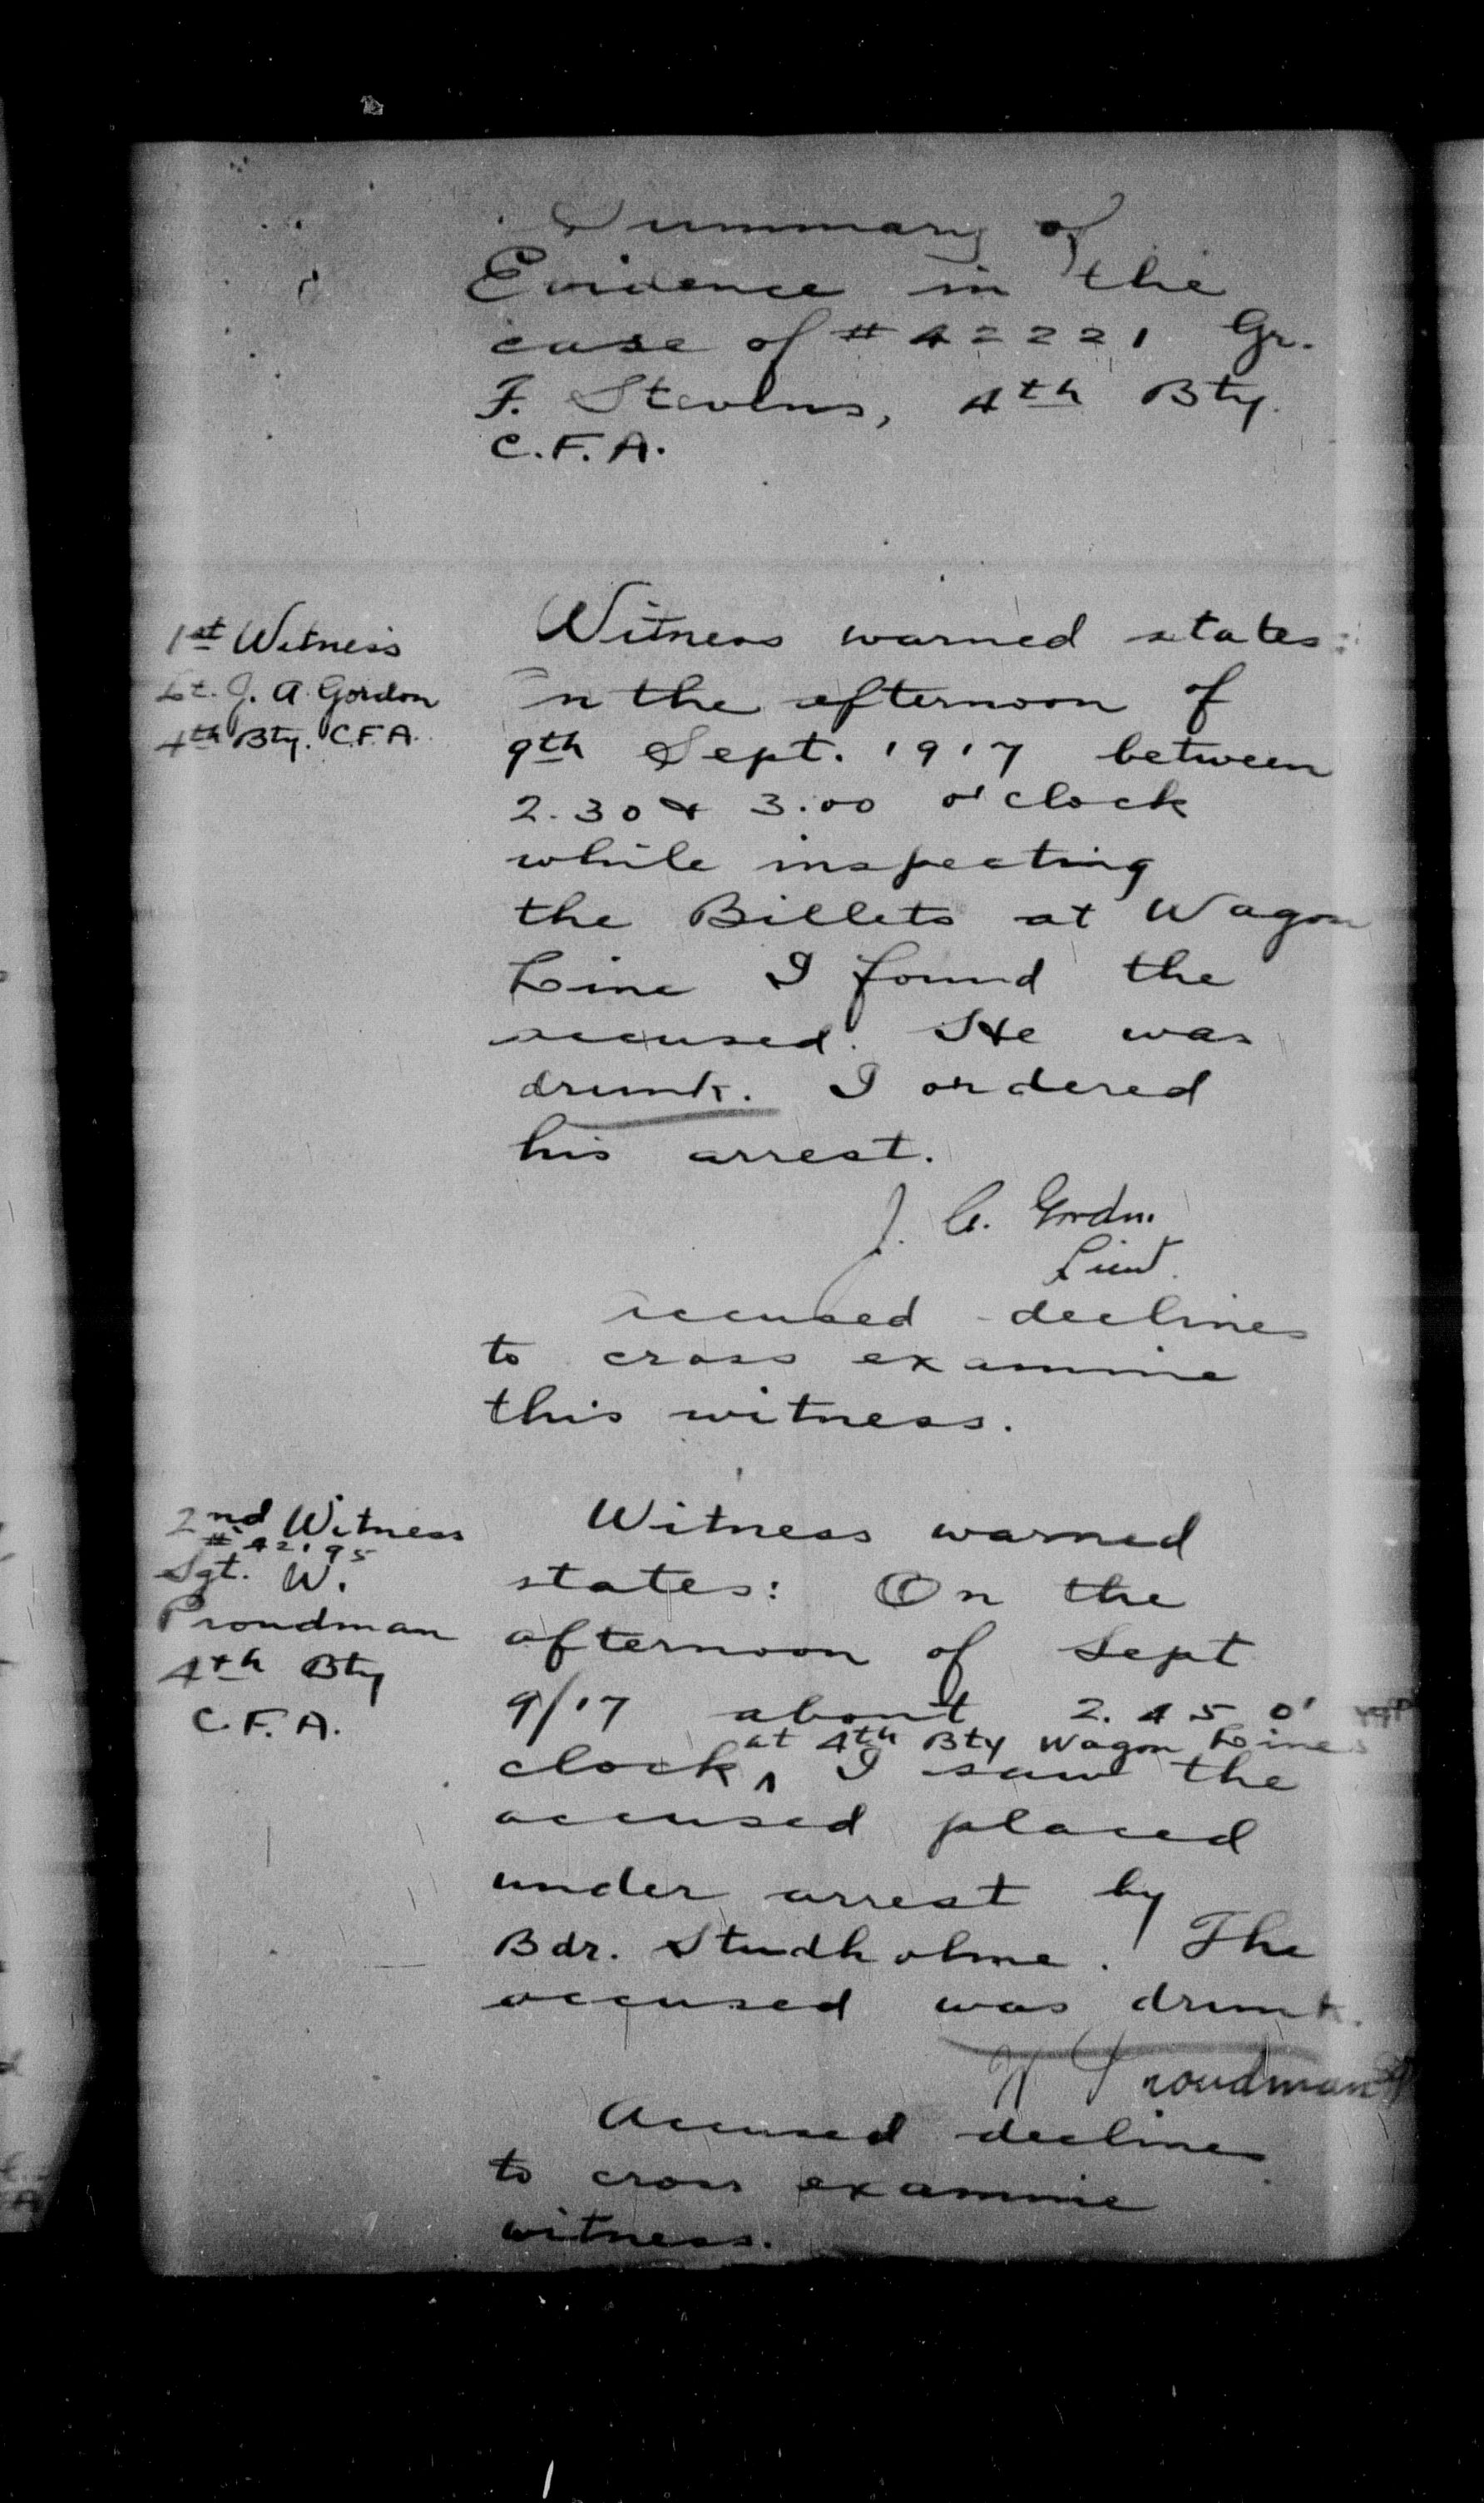 Summary of
Evidence in the
case of #42221 Gr.
F. Stevens, 4th Bty.
C.F.A.
1st Witness
Lt. J. A. Gordon
4th Bty. C.F.A.
Witness warned states:
In the afternoon of
9th Sept. 1917 between
2.30 & 3.00 o'clock
while inspecting
the Billets at Wagon
Line I found the
accused. He was
drunk. I ordered
his arrest.
J. A. Gordon
Lieut.
Accused declines
to cross examine
this witness.
2nd Witness
#42195
Sgt. W.
Proudman
4th Bty
C.F.A.
Witness warned
states: On the
afternoon of Sept
9/17 about 2.45 o'
at 4th Bty Wagon Lines
clock, ^ I saw the
accused placed
under arrest by
Bdr. Studholme. The
accused was drunk.
W Proudman
Accused declines
to cross examine
witness.